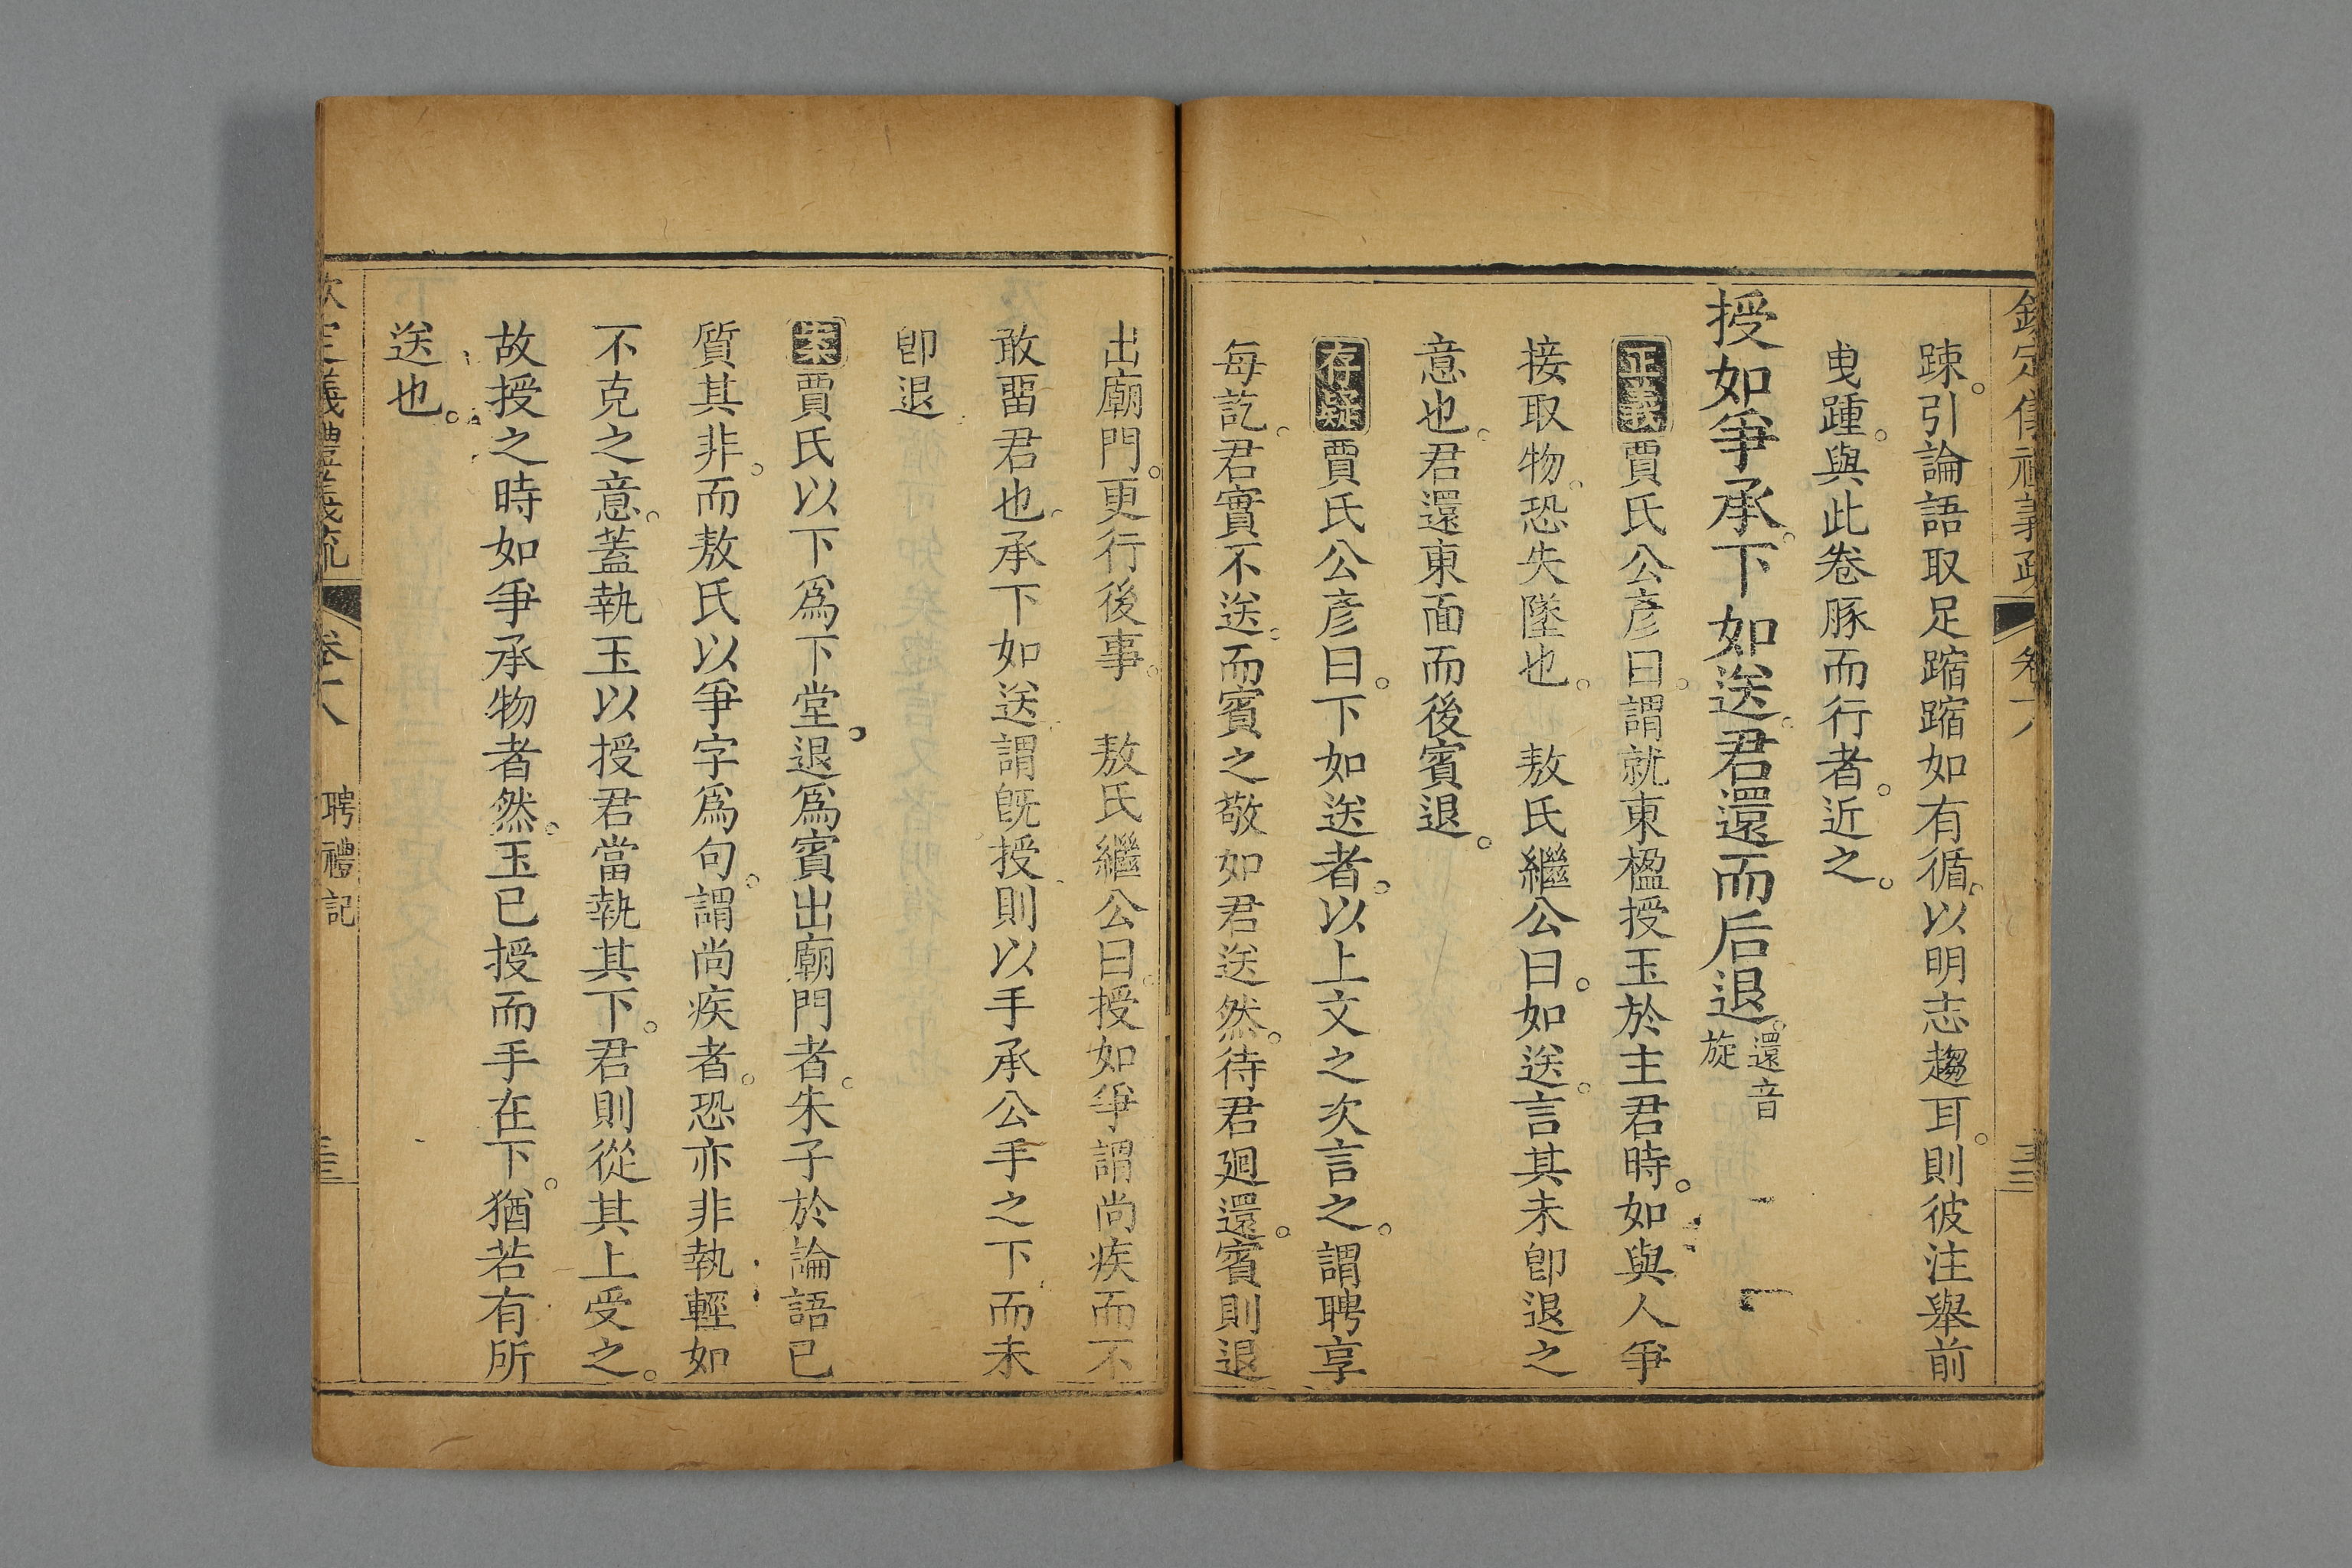 欽定儀禮義疏 卷十八
疎引論語取足蹜蹜如有循以明志趨耳則彼注舉前
曳踵與此卷豚而行者近之
授如爭承下如送君還而后退還音旋
正義賈氏公彥曰謂就東楹授玉於主君時如與人爭
接取物恐失墜也 敖氏繼公曰如送言其未卽退之
意也君還東面而後賓退
存疑賈氏公彥曰下如送者以上文之次言之謂聘享
每訖君實不送而賓之敬如君送然待君廻還賓則退
出廟門更行後事 敖氏繼公曰授如爭謂尚疾而不
敢畱君也承下如送謂旣授則以手承公手之下而未
卽退
案賈氏以下爲下堂退爲賓出廟門者朱子於論語已
質其非而敖氏以爭字爲句謂尚疾者恐亦非執輕如
不克之意蓋執玉以授君當執其下君則從其上受之
故授之時如爭承物者然玉已授而手在下猶若有所
送也
欽定義禮義疏 卷十八 聘禮記